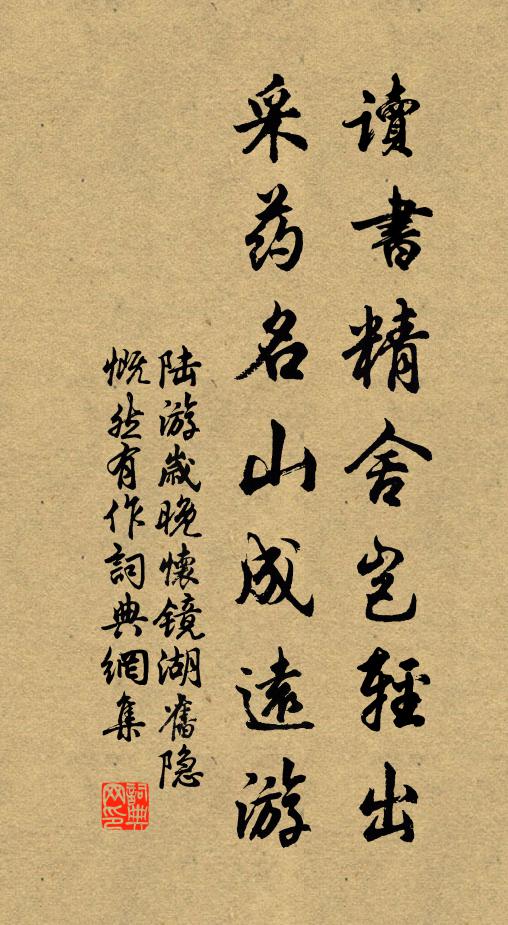 讀書精舍岂輕出
采药名山成遠游
陆游歲晚懷镜湖舊隐
慨然有作詞典網集
詞典
网印